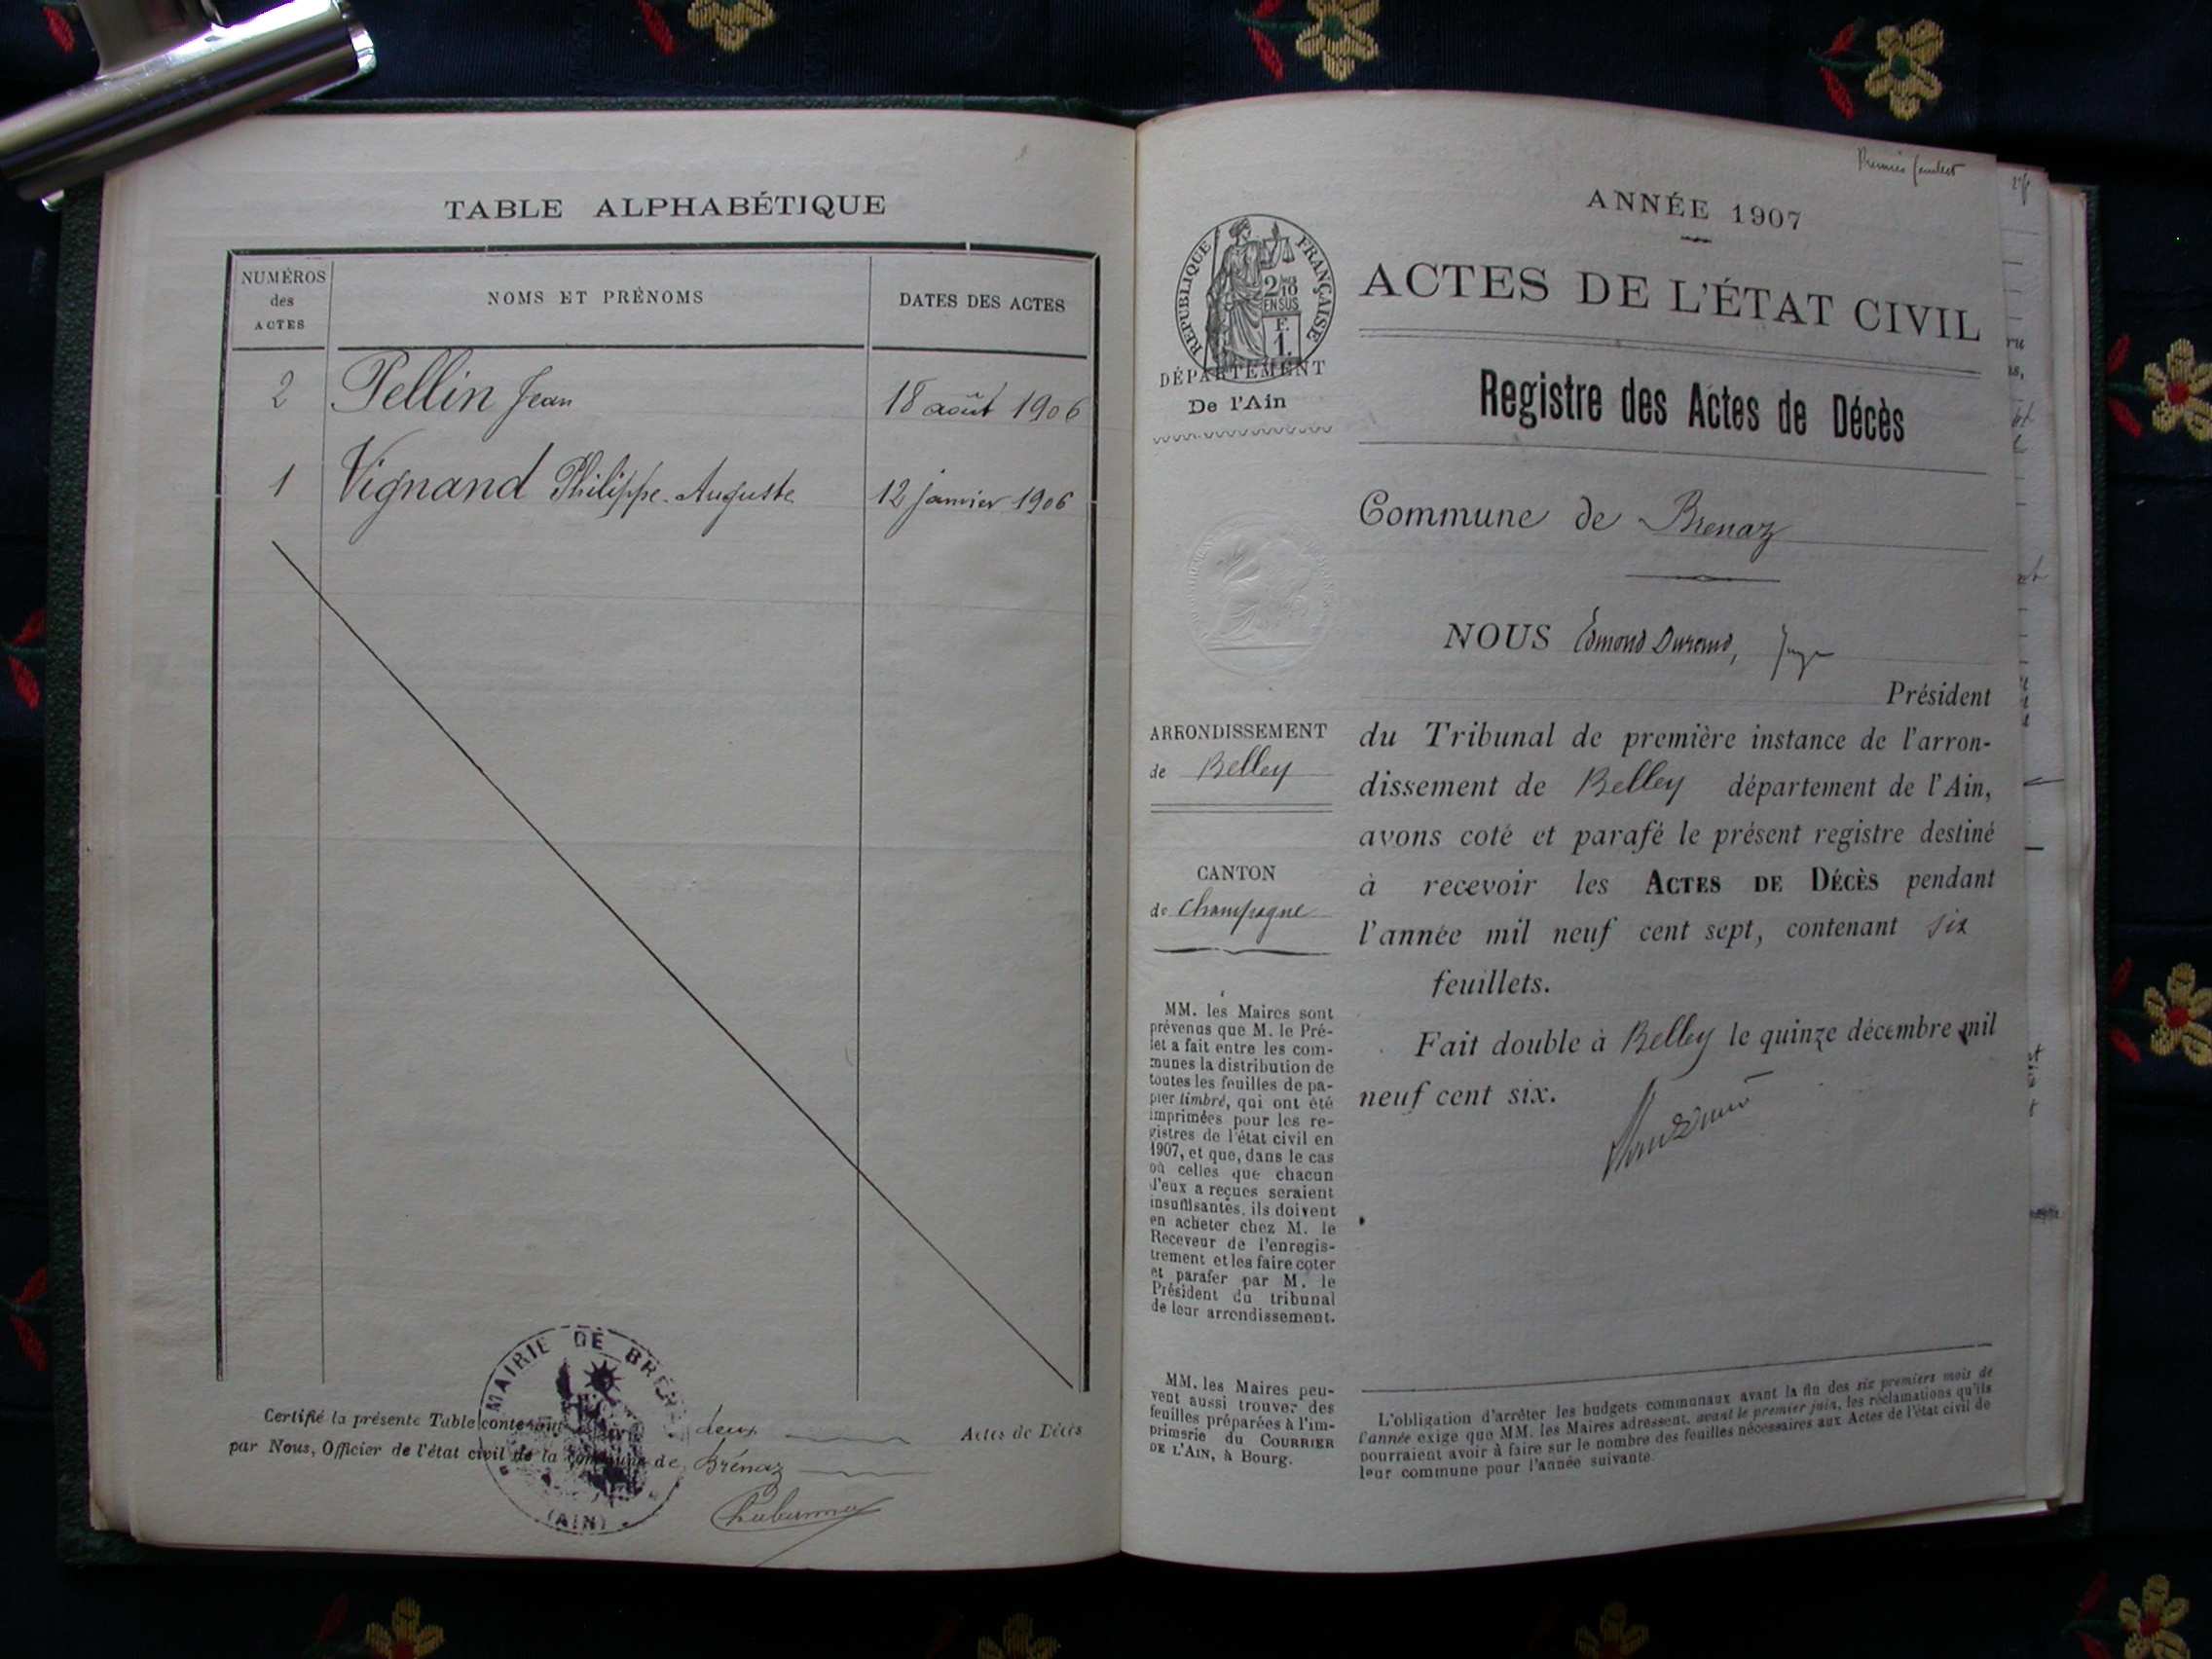 TABLE ALPHABÉTIQUE
NUMÉROS des ACTES
NOMS ET PRÉNOMS
DATES DES ACTES
2 Pellin Jean 18 août 1906
1 Vignand Philippe-Auguste 12 janvier 1906
MAIRIE DE BRÉNAZ
(AIN)
Certifié la présente Table contenant deux Actes de Décès
par Nous, Officier de l'état civil de la Commune de Brénaz
Premier feuillet
ANNÉE 1907
RÉPUBLIQUE FRANÇAISE
2/10
EN SUS
F.
1.
DÉPARTEMENT
De l'Ain
ACTES DE L'ÉTAT CIVIL
Registre des Actes de Décès
Commune de Brenaz
NOUS Edmond Durand, Juge
Président
ARRONDISSEMENT
de Belley
CANTON
de Champagne
du Tribunal de première instance de l'arron-
dissement de Belley département de l'Ain,
avons coté et parafé le présent registre destiné
à recevoir les ACTES DE DÉCÈS pendant
l'année mil neuf cent sept, contenant six
feuillets.
Fait double à Belley le quinze décembre mil
neuf cent six.
MM. les Maires sont
prévenus que M. le Pré-
fet a fait entre les com-
munes la distribution de
toutes les feuilles de pa-
pier timbré, qui ont été
imprimées pour les re-
gistres de l'état civil en
1907, et que, dans le cas
où celles que chacun
d'eux a reçues seraient
insuffisantes, ils doivent
en acheter chez M. le
Receveur de l'enregis-
trement et les faire coter
et parafer par M. le
Président du tribunal
de leur arrondissement.
MM. les Maires peu-
vent aussi trouver des
feuilles préparées à l'im-
primerie du COURRIER
DE L'AIN, à Bourg.
L'obligation d'arrêter les budgets communaux avant la fin des six premiers mois de
l'année exige que MM. les Maires adressent, avant le premier juin, les réclamations qu'ils
pourraient avoir à faire sur le nombre des feuilles nécessaires aux Actes de l'état civil de
leur commune pour l'année suivante.